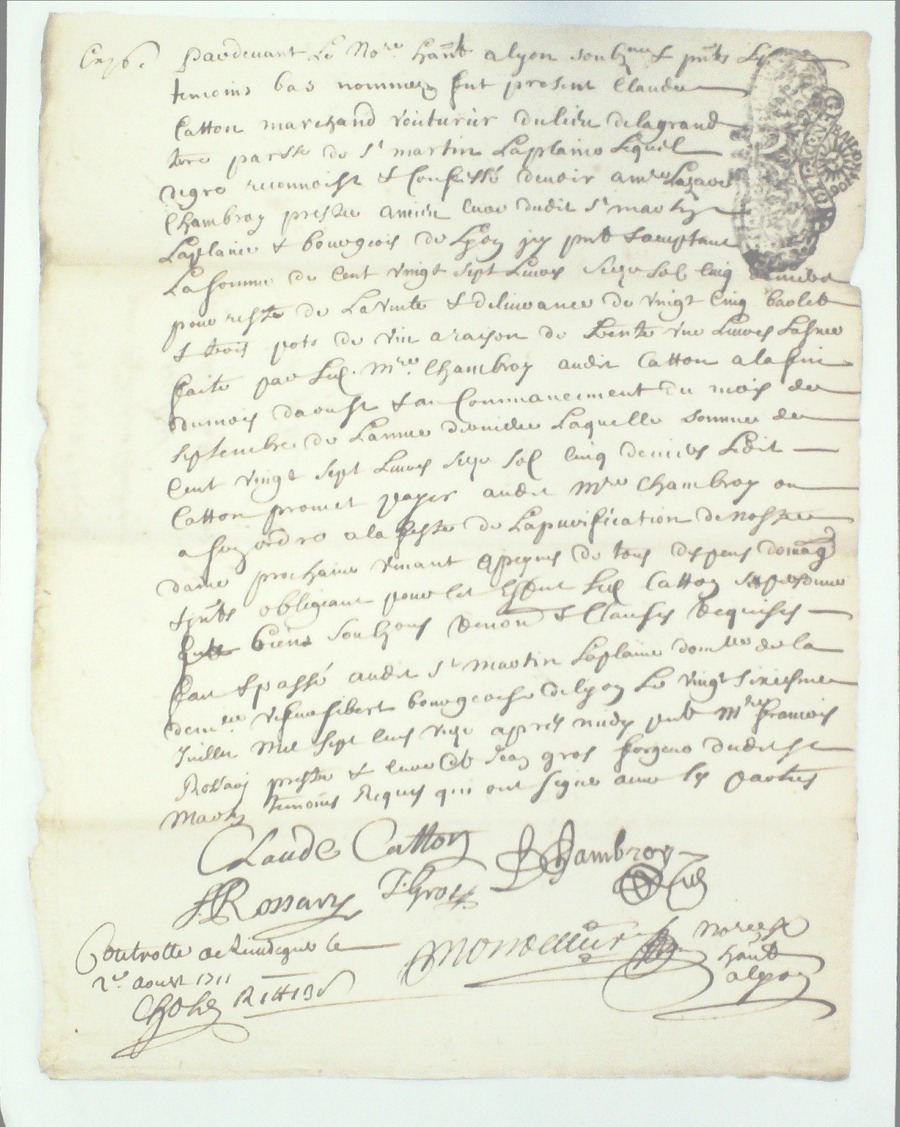 pardevant Le No.re hante a lyon soubz.ne & pnts Les
temoins bas nommez fut present Claude
Catton marchand voiturier du lieu de la grand
terre parsse de st martin Laplaine Lequel
degre reconnoist & Confessé devoir a mre Lazare
Chambroy prestre ancien Curé dudit st martin
Laplaine & bourgeois de Lyon icy pnt & acceptant
La somme de Cent vingt sept Livres seize sols Cinq deniers
pour reste de La vente & delivrance de vingt Cinq
& trois pots de vin a raison de trente une Livres Lasnee
faite par Led. mre Chambroy audit Catton a la fin
du mois daoust & au Commancement du mois de
septembre de Lannee derniere Laquelle somme de
Cent vingt sept Livres seize sols Cinq deniers Ledit
Catton promet payer audit mre Chambroy ou
a son ordre a la feste de Lapurification de nostre
dame prochaine venant a peyne de tous despens domag
& jnts obligeant pour cet Effect Led. Catton
biens soubzons Renon & Clauses Requises
fait & passé audit st martin Laplaine de la
dem.lle bourgeoise de lyon Le vingt sixiesme
Juillet Mil sept Cens unze apres midy pnt mre francois
Rossary prestre & Curé & Jean gros forgeur dudit st
Martin temoins Requis qui ont signe avec les parties
Claude Catton Chambroy
f. Rossary J. Gros
Controlle a le
2e. aoust 1711
No.re
hante
a lyon